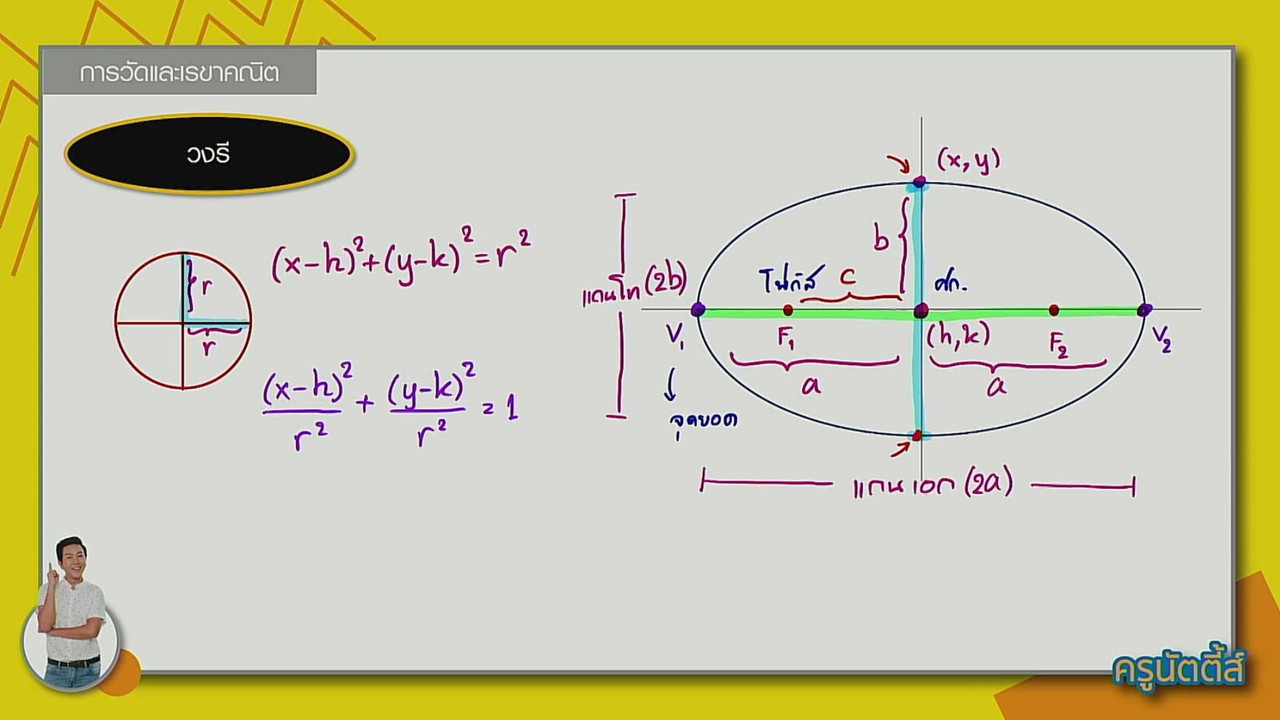 การวัดและเรขาคณิต
วงรี
(x-h)²+(y-k)²=r²
r
r
(x-h)²/r² + (y-k)²/r² = 1
(x,y)
b
แกนโท (2b)
โฟกัส
C
ศก.
V₁
F₁
(h,k)
F₂
V₂
a
a
จุดยอด
แกนเอก (2a)
ครูนัตตี้ส์